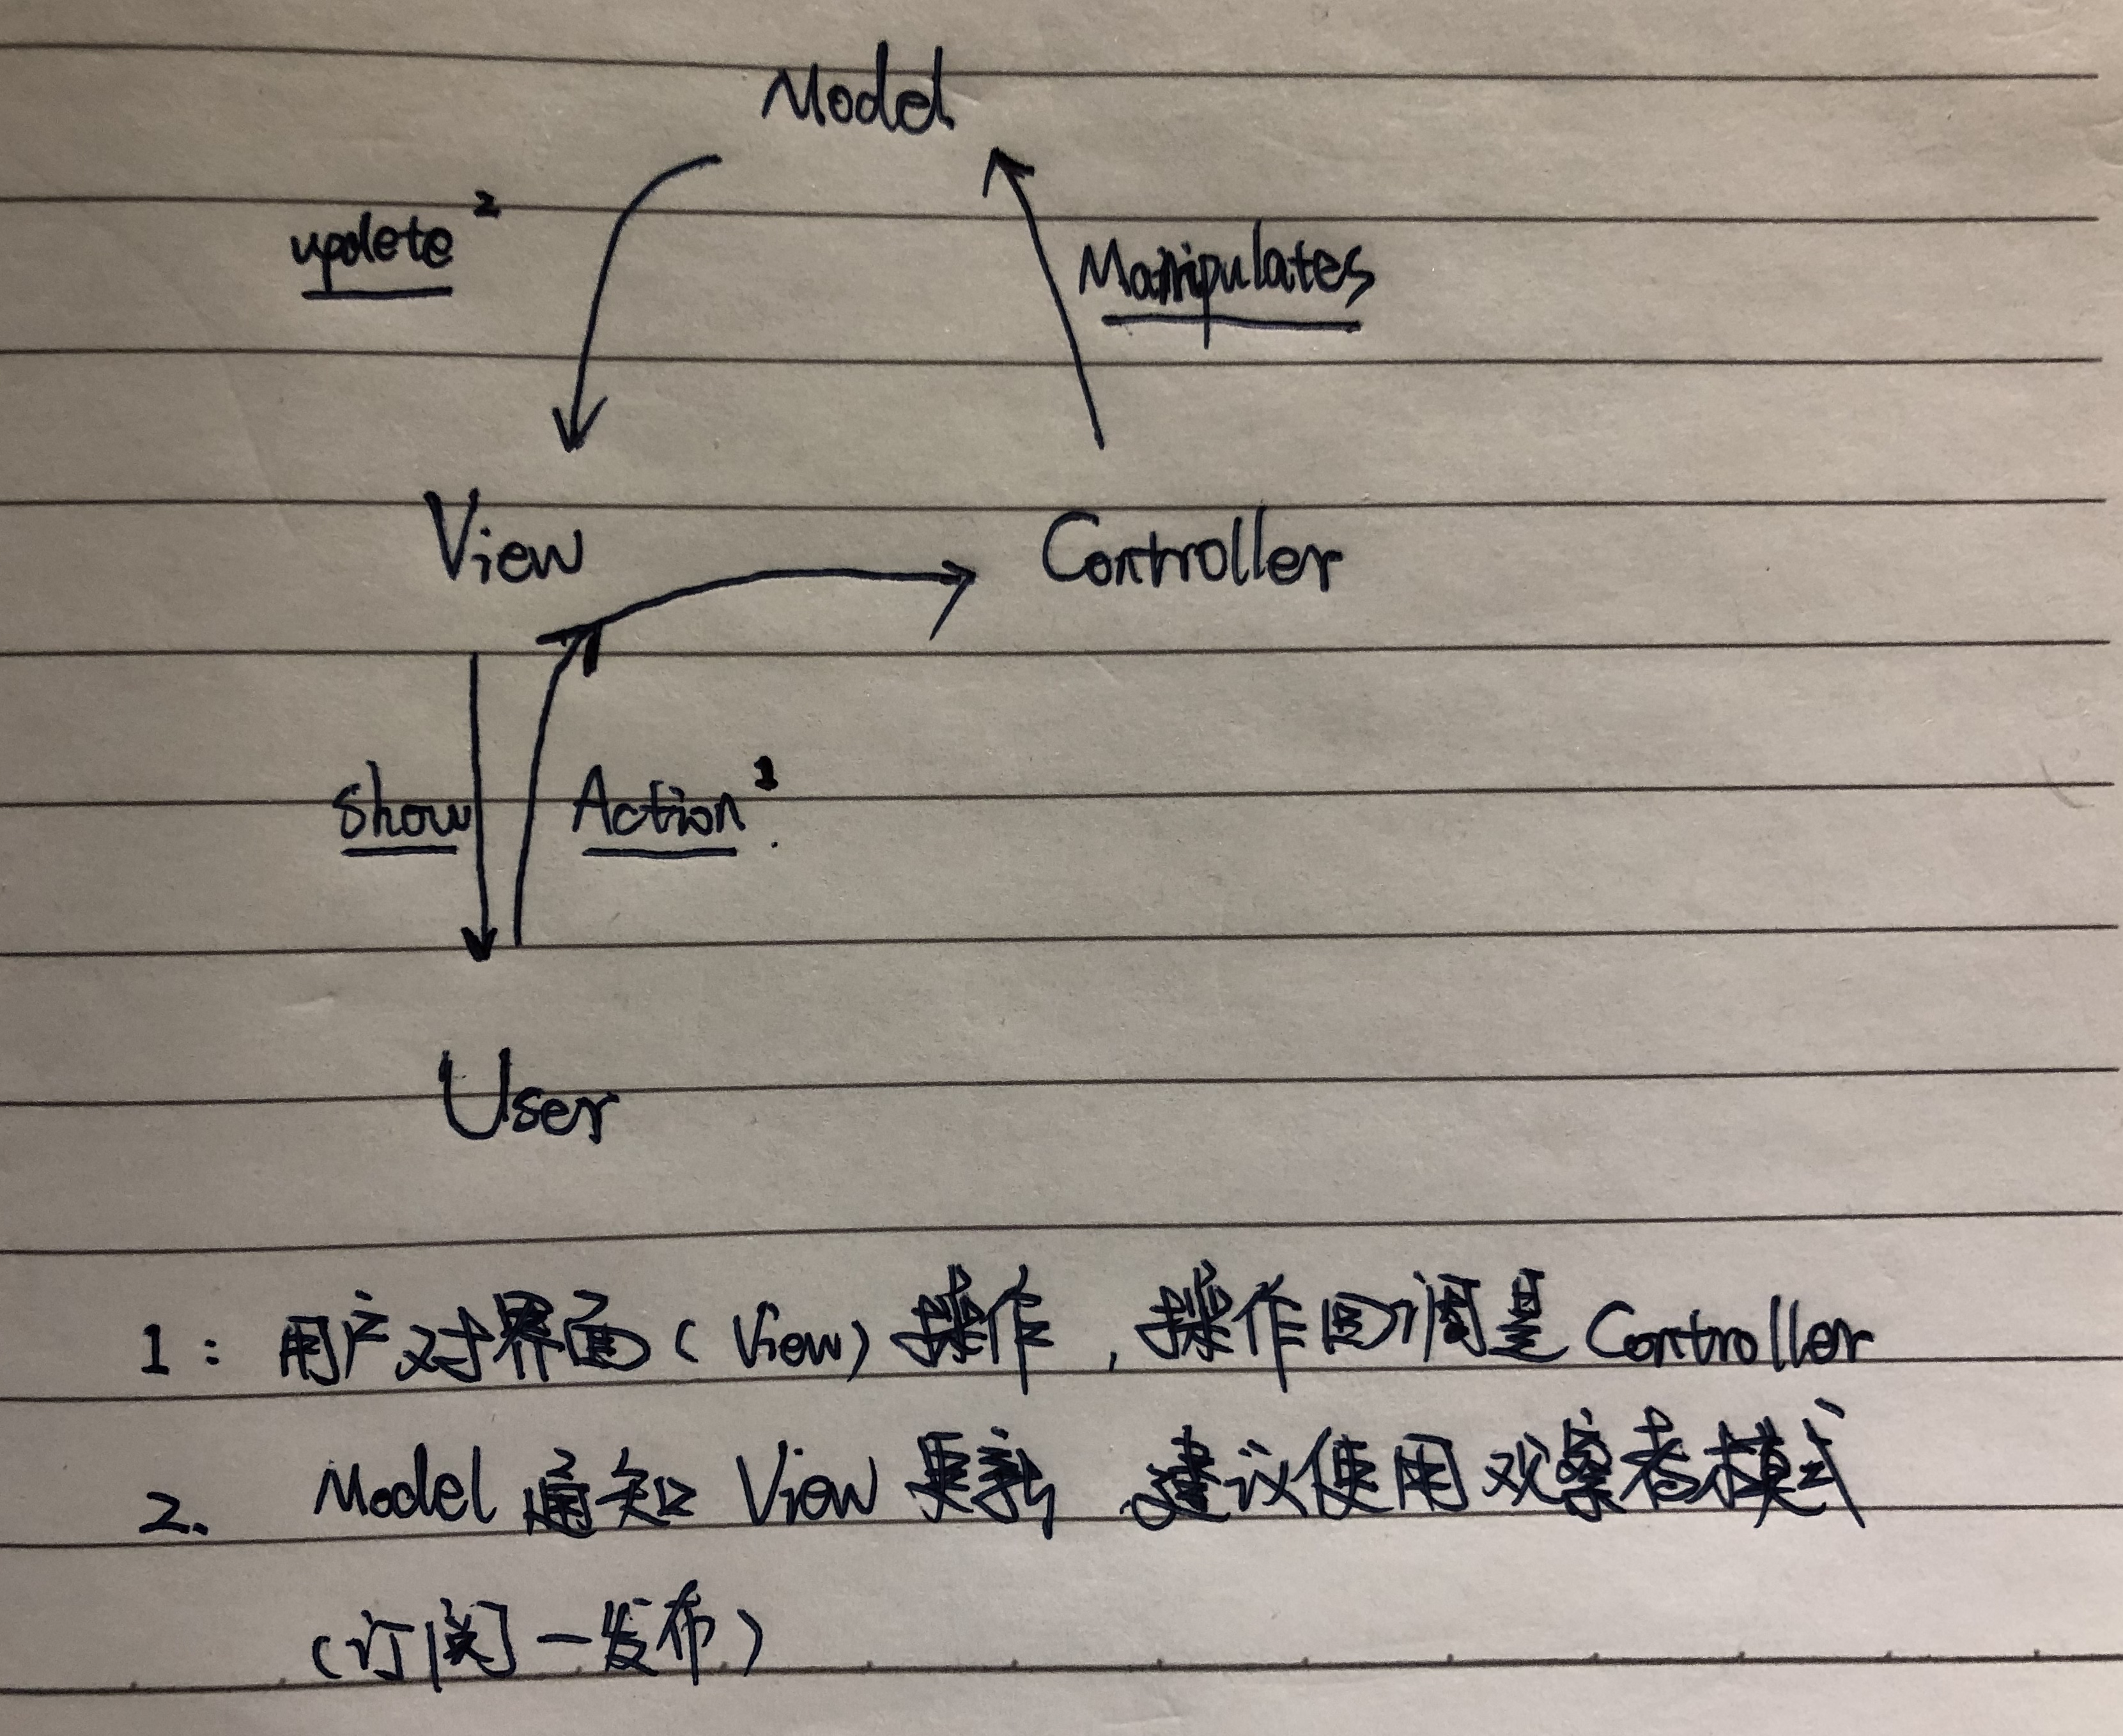 Model
update²
Manipulates
View
Controller
Show
Action¹
User
1: 用户对界面(View)操作,操作回调是Controller
2、Model 通知 View 更新 建议使用观察者模式
(订阅—发布)